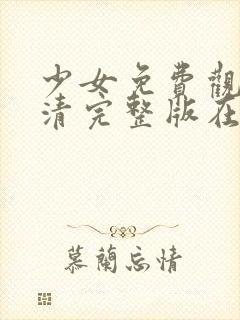 少女免費觀
清完整版在
慕蘭忘情